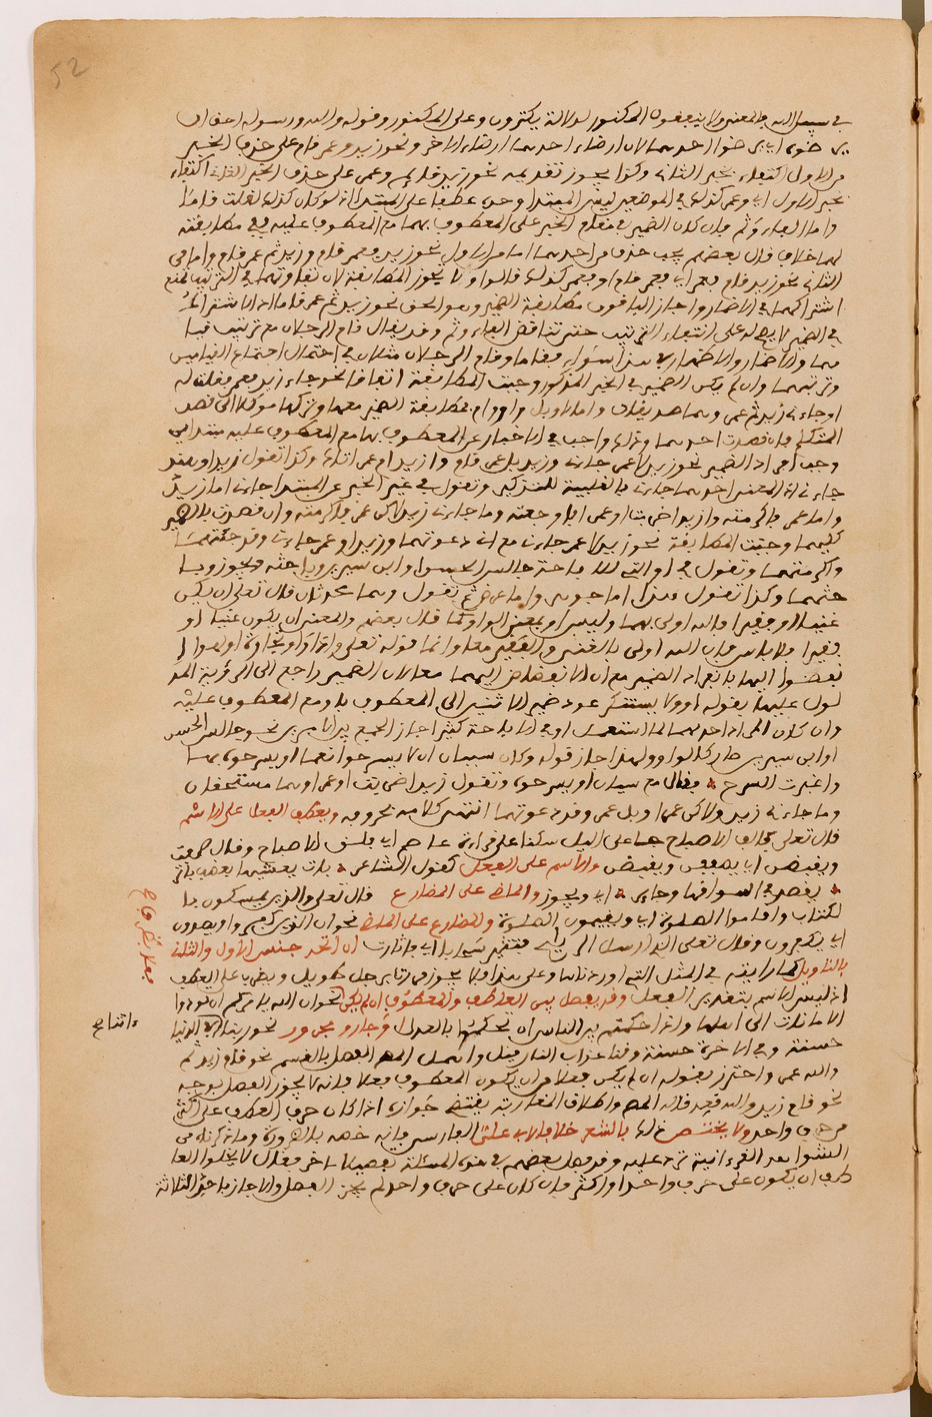 52
في سبيل الله بالمعنى ولا ينفقون المكنوز لدلالة يكنزون وعلى المكنوز وقوله والله ورسوله أحق أن
يرضوه أي يرضوا أحدهما لأن ارضاء أحدهما ارضاء الآخر ونحو زيد وعمر قام على حذف الخبر
من الأول اكتفاء بخبر الثاني وكذا يجوز تقديمه نحو زيد قام وعمر على حذف الخبر الثاني اكتفاء
بخبر الأول أي وعمر كذلك في الموضعين ليس المبتدأ وحده عطفا على المبتدأ إذ لو كان كذلك لقلت قاما
وأما الفاء وثم فإن كان الضمير في مقام الخبر على المعطوف بهما مع المعطوف عليه ففي مطابقته
لهما خلاف قال بعضهم يجب حذف من أحدهما إما من الأول نحو زيد فعمر قام وزيد ثم عمر قام وإما من
الثاني نحو زيد قام فعمر أي فعمر قام أو فعمر كذلك قالوا ولا يجوز المطابقة لأن تفاوتهما في الترتيب يمنع
اشتراكهما في الإضمار وأجاز الباقون مطابقة الضمير وهو الحق نحو زيد ثم عمر قاما إذ الاشتراك
في الضمير لا يدل على انتفاء الترتيب حتى تناقض الفاء وثم وقد يقال قام الرجلان مع ترتيب
قيامهما والإضمار والإظهار في هذا سواء فقاما وقام الرجلان مثلان في احتمال اجتماع القيامين
وترتبهما وإن لم يكن الضمير في الخبر المذكور وجبت المطابقة اتفاقا نحو جاءني زيد فعمر فقلت له
أو جاءني زيد ثم عمر وهما صديقان وأما لا وبل وأو وأم فمطابقة الضمير معها وتركها موكول إلى قصد
المتكلم فإن قصدت أحدهما وذلك واجب في الإخبار عن المعطوف بها مع المعطوف عليه مبتدأ
وجب إفراد الضمير نحو زيد لا عمر جاءني وزيد بل عمر قام وأزيد أم عمر أتاك وكذا تقول زيد أو هند
جاءني إذ المعنى أحدهما جاءني بالغلبة للتذكير وتقول في غير الخبر عن المبتدأ جاءني إما زيد
وإما عمر فأكرمته وأزيدا ضربت أو عمرا فأوجعته وما جاءني زيد لكن عمر فأكرمته وإن قصدت بالضمير
كليهما وجبت المطابقة نحو زيد لا عمر جاءني مع أني دعوتهما وزيد أو عمر جاءني وقد جئتهما
وأكرمتهما وتقول في أو التي للإباحة جالس الحسن أو ابن سيرين وباحثه ويجوز
وباحثهما وكذا تقول هذا إما جوهر وإما عرض تقول وهما محدثان قال تعالى إن يكن
غنيا أو فقيرا فالله أولى بهما وليس أو بمعنى الواو كما قال بعضهم والمعنى إن يكون غنيا أو
فقيرا فلا بأس فإن الله أولى بالغني والفقير معا وأما قوله تعالى وإذا رأوا تجارة أو لهوا
انفضوا إليها بإفراد الضمير مع أن الانفضاض إليهما معا لأن الضمير راجع إلى الرؤية المد
لول عليها بقوله رأوا ولا يستنكر عود ضمير الاثنين إلى المعطوف بأو مع المعطوف عليه
وإن كان المراد أحدهما لما استعمل أو في الإباحة كثيرا جاز الجمع بين الأمرين نحو جالس الحسن
أو ابن سيرين صار كالواو ولهذا جاز قوله وكان سيان أن لا يسرحوا نعما أو يسرحوه بها
واغبرت السرح فقال مع سيان أو يسرحوه وتقول زيدا ضربت أو عمرا وهما مستحقان
وما جاءني زيد ولكن عمرا وبل عمر وقد دعوتهما انتهى كلامه بحروفه ويعطف الفعل على الاسم
قال تعالى فالق الإصباح جاعل الليل سكنا على قراءة عاصم أي فلق الإصباح وقال صافات
ويقبضن أي يصففن ويقبضن والاسم على الفعل كقول الشاعر بات يعشيها بعضب باتر
يقصد في أسوقها وجائر أي ويجوز والماضي على المضارع قال تعالى والذين يمسكون با
لكتاب وأقاموا الصلاة أي ويقيمون الصلاة والمضارع على الماضي نحو إن الذين كفروا ويصدون
أي يكفرون وقال تعالى الله أرسل الرياح فتثير سحابا أي فأثارت إن اتحد جنس الأول والثاني
بالتأويل كما رأيته في المثل التي أوردناها وعلى هذا فلا يجوز مررت برجل طويل ويضرب على العطف
إذ ليس الاسم بتقدير الفعل وقد يفصل بين العاطف والمعطوف إن لم يكن نحو إن الله يأمركم أن تؤدوا
الأمانات إلى أهلها وإذا حكمتم بين الناس أن تحكموا بالعدل أو جار ومجرور نحو ربنا آتنا في الدنيا
حسنة وفي الآخرة حسنة وقنا عذاب النار وأهمل المص الفصل بالقسم نحو قام زيد ثم
والله عمر واحترز بقوله إن لم يكن فعلا من أن يكون المعطوف فعلا فإنه لا يجوز الفصل بوجه
نحو قام زيد والله قعد قاله المص وإطلاق المغاربة يقتضي جوازه إذا كان حرف العطف على أكثر
من حرف واحد ولا يختص ذلك بالشعر خلافا لأبي علي الفارسي فإنه خصه بالضرورة وما ذكرناه من
الشواهد القرآنية ترد عليه وقد فصل بعضهم في هذه المسئلة تفصيلا آخر فقال لا يخلوا العا
طف إن يكون على حرف واحد أو أكثر فإن كان على حرف واحد لم يجز الفصل وإلا جاز